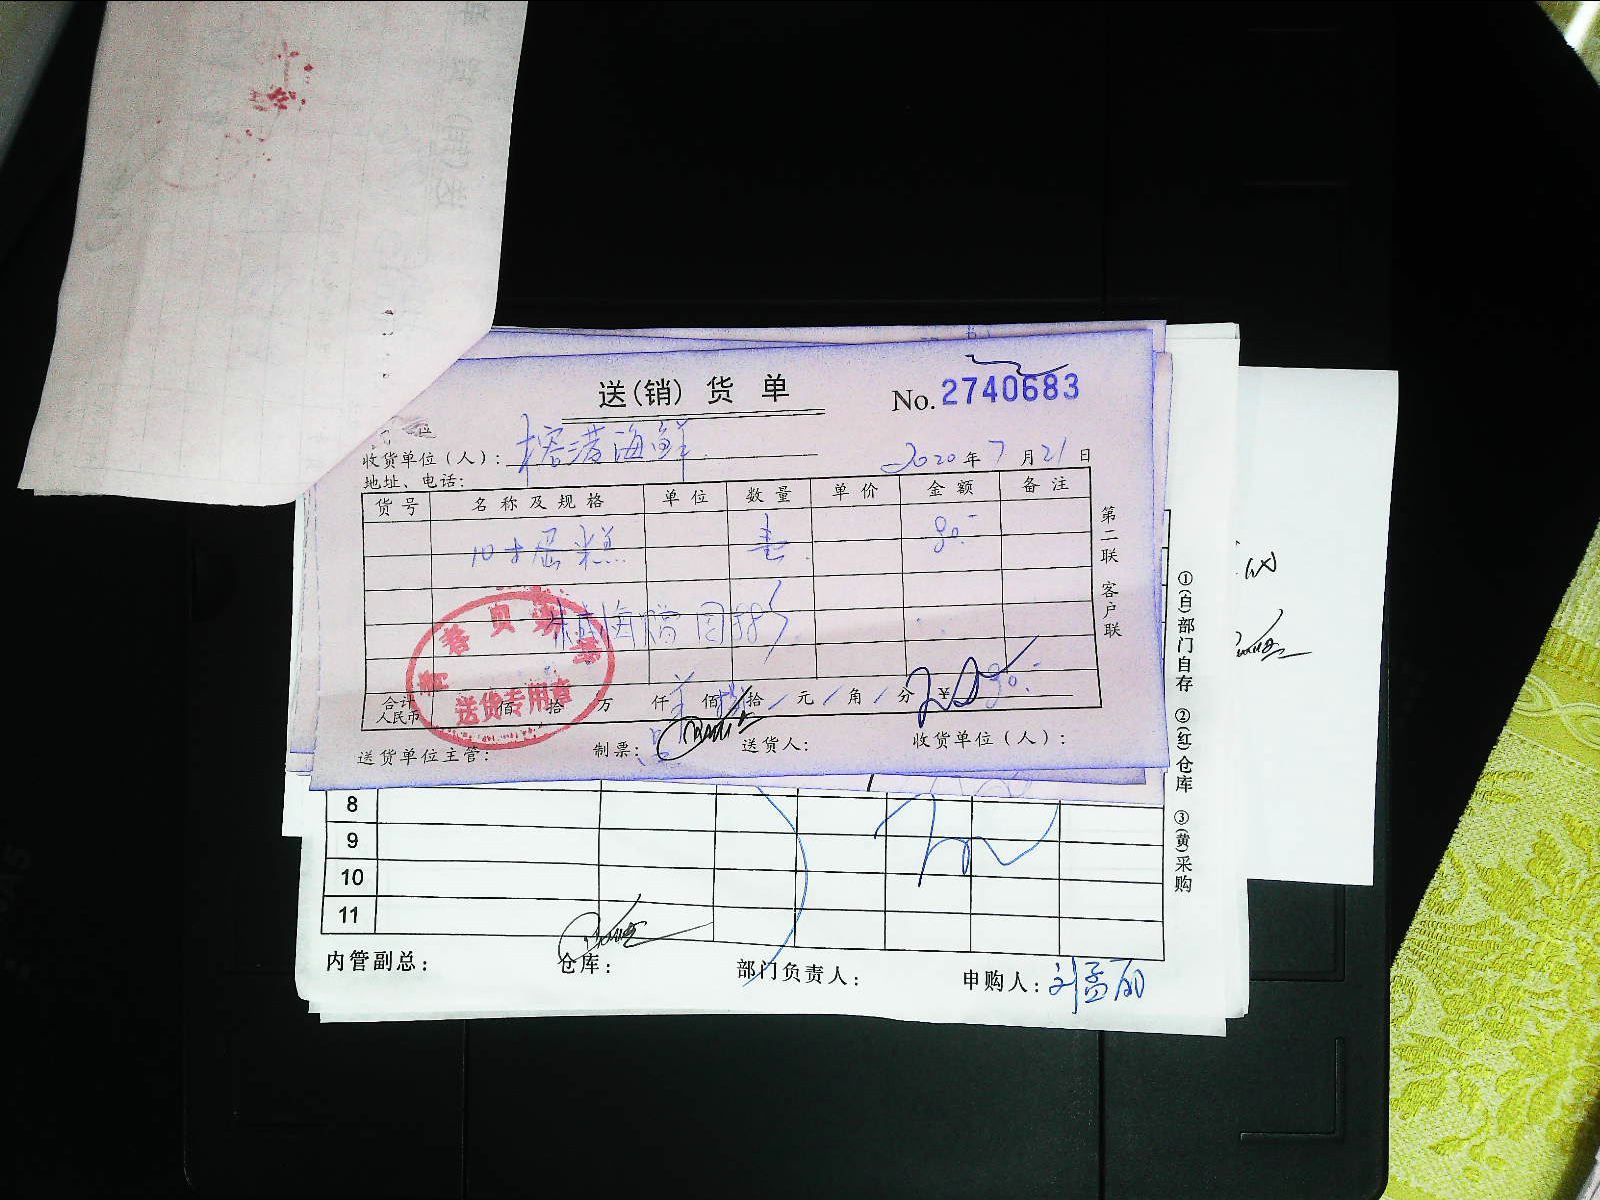 送(销) 货 单
No. 2740683
收货单位(人): 榕港海鲜
2020年7月21日
地址、电话:
货号 名称及规格 单位 数量 单价 金额 备注
10寸蛋糕 壹 80.-
送货专用章
合计人民币 佰 拾 万 仟 佰 拾 元 角 分 ¥ 80.-
送货单位主管: 制票: 送货人: 收货单位(人):
第二联 客户联
8
9
10
11
内管副总: 仓库: 部门负责人: 申购人: 刘孟丽
①(自)部门自存 ②(红)仓库 ③(黄)采购